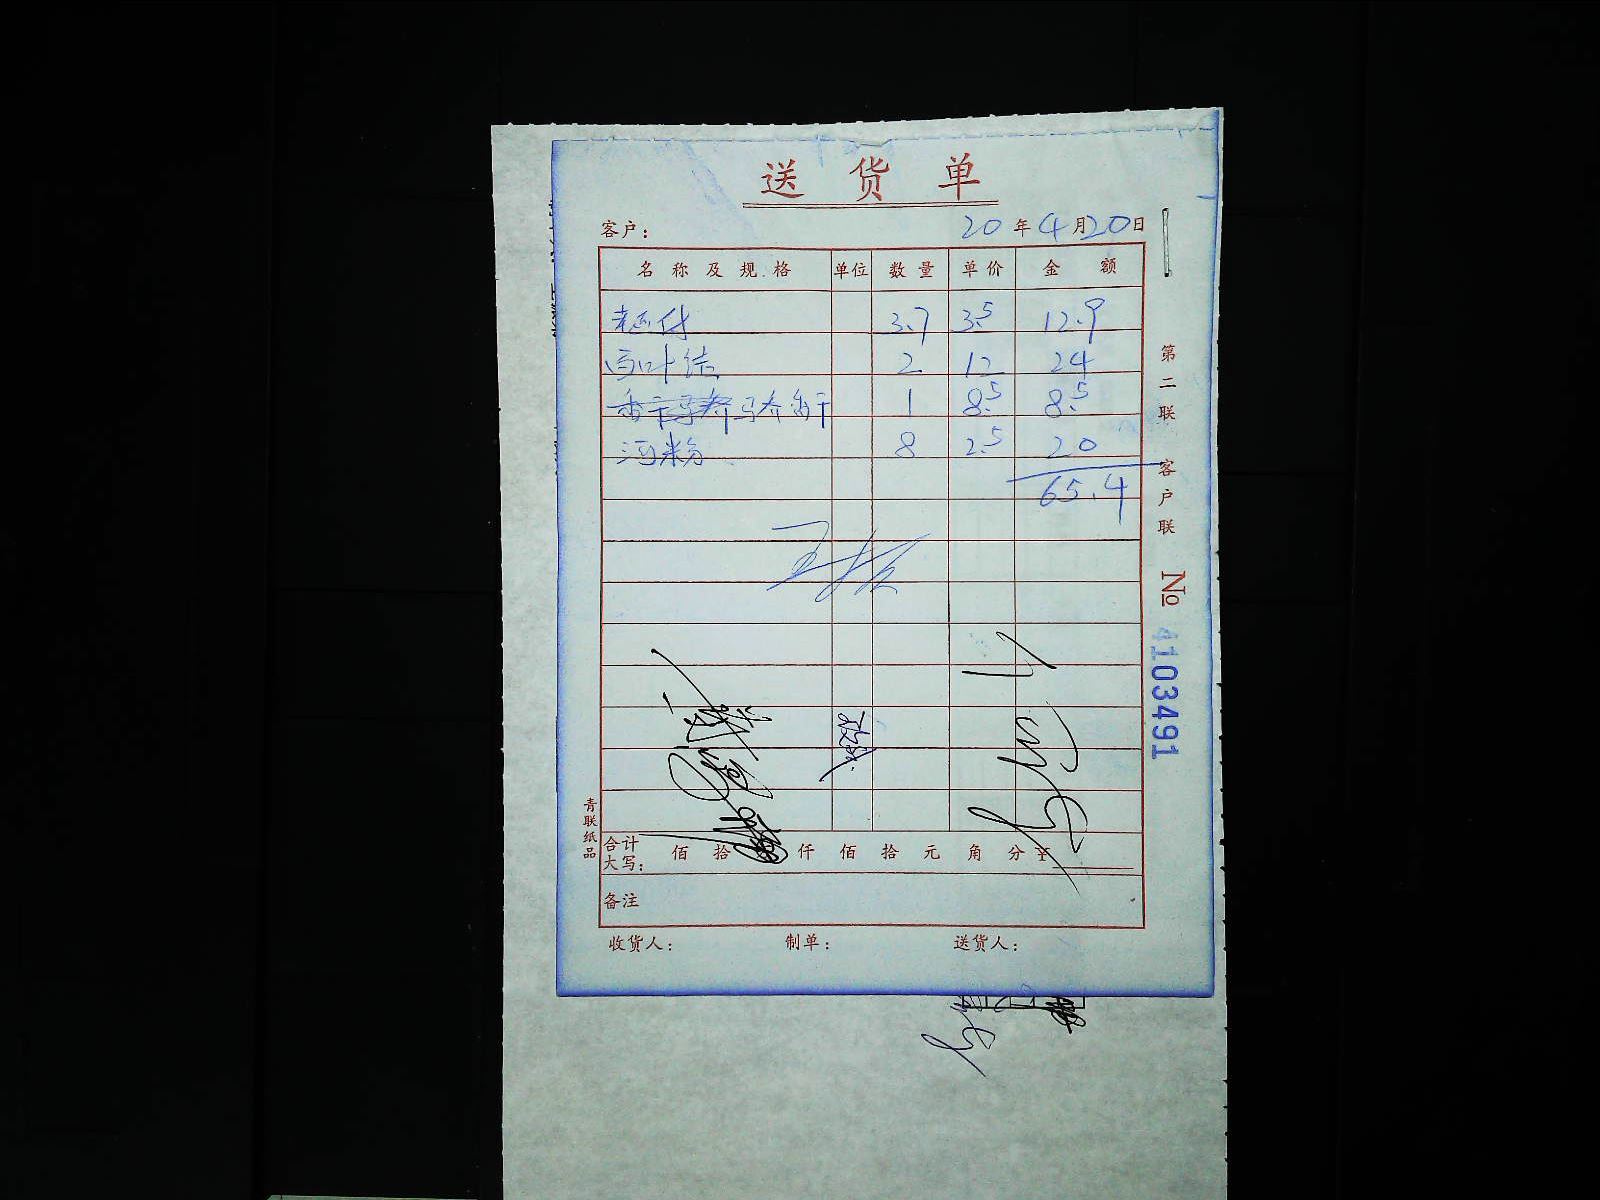 送货单
客户： 20年4月20日
名称及规格 单位 数量 单价 金额
老豆付 3.7 3.5 12.9
百叶结 2 12 24
马桥香干 1 8.5 8.5
河粉 8 2.5 20
65.4
第二联 客户联
№ 4103491
青联纸品
合计大写： 佰 拾 仟 佰 拾 元 角 分 ¥
备注
收货人： 制单： 送货人：